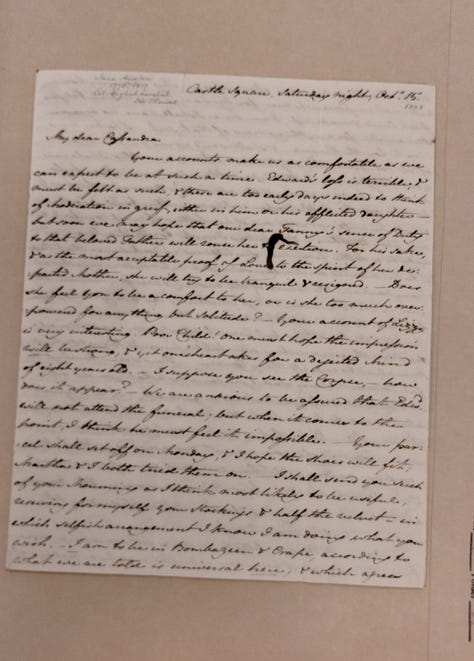 Jane Austen
1775-1817
English novelist
Castle Square, Saturday night, Octr. 15.
1808
My dear Cassandra
Your accounts make us as comfortable as we
can expect to be at such a time. Edward's loss is terrible, &
must be felt as such, & these are too early days indeed to think
of Moderation in greif, either in him or his afflicted daughter —
but soon we may hope that our dear Fanny's sense of Duty
to that beloved Father will rouse her to exertion. For his sake,
& as the most acceptable proof of Love to the spirit of her de:
:parted Mother, she will try to be tranquil & resigned. — Does
she feel You to be a comfort to her, or is she too much over:
:powered for anything but Solitude? — Your account of Lizzy
is very interesting. Poor Child! One must hope the impression
will be strong, & yet one's heart aches for a dejected Mind
of eight years old. — I suppose you see the Corpse, — how
does it appear? — We are anxious to be assured that Edwd.
will not attend the funeral; but when it comes to the
point, I think he must feel it impossible. — Your par:
:cel shall set off on Monday, & I hope the Shoes will fit;
Martha & I both tried them on. — I shall send you such
of your Mourning as I think most likely to be useful,
reserving for myself your Stockings & half the velvet — in
which selfish arrangement I know I am doing what you
wish. — I am to be in Bombazeen & Crape, according to
what we are told is universal here; & which agrees